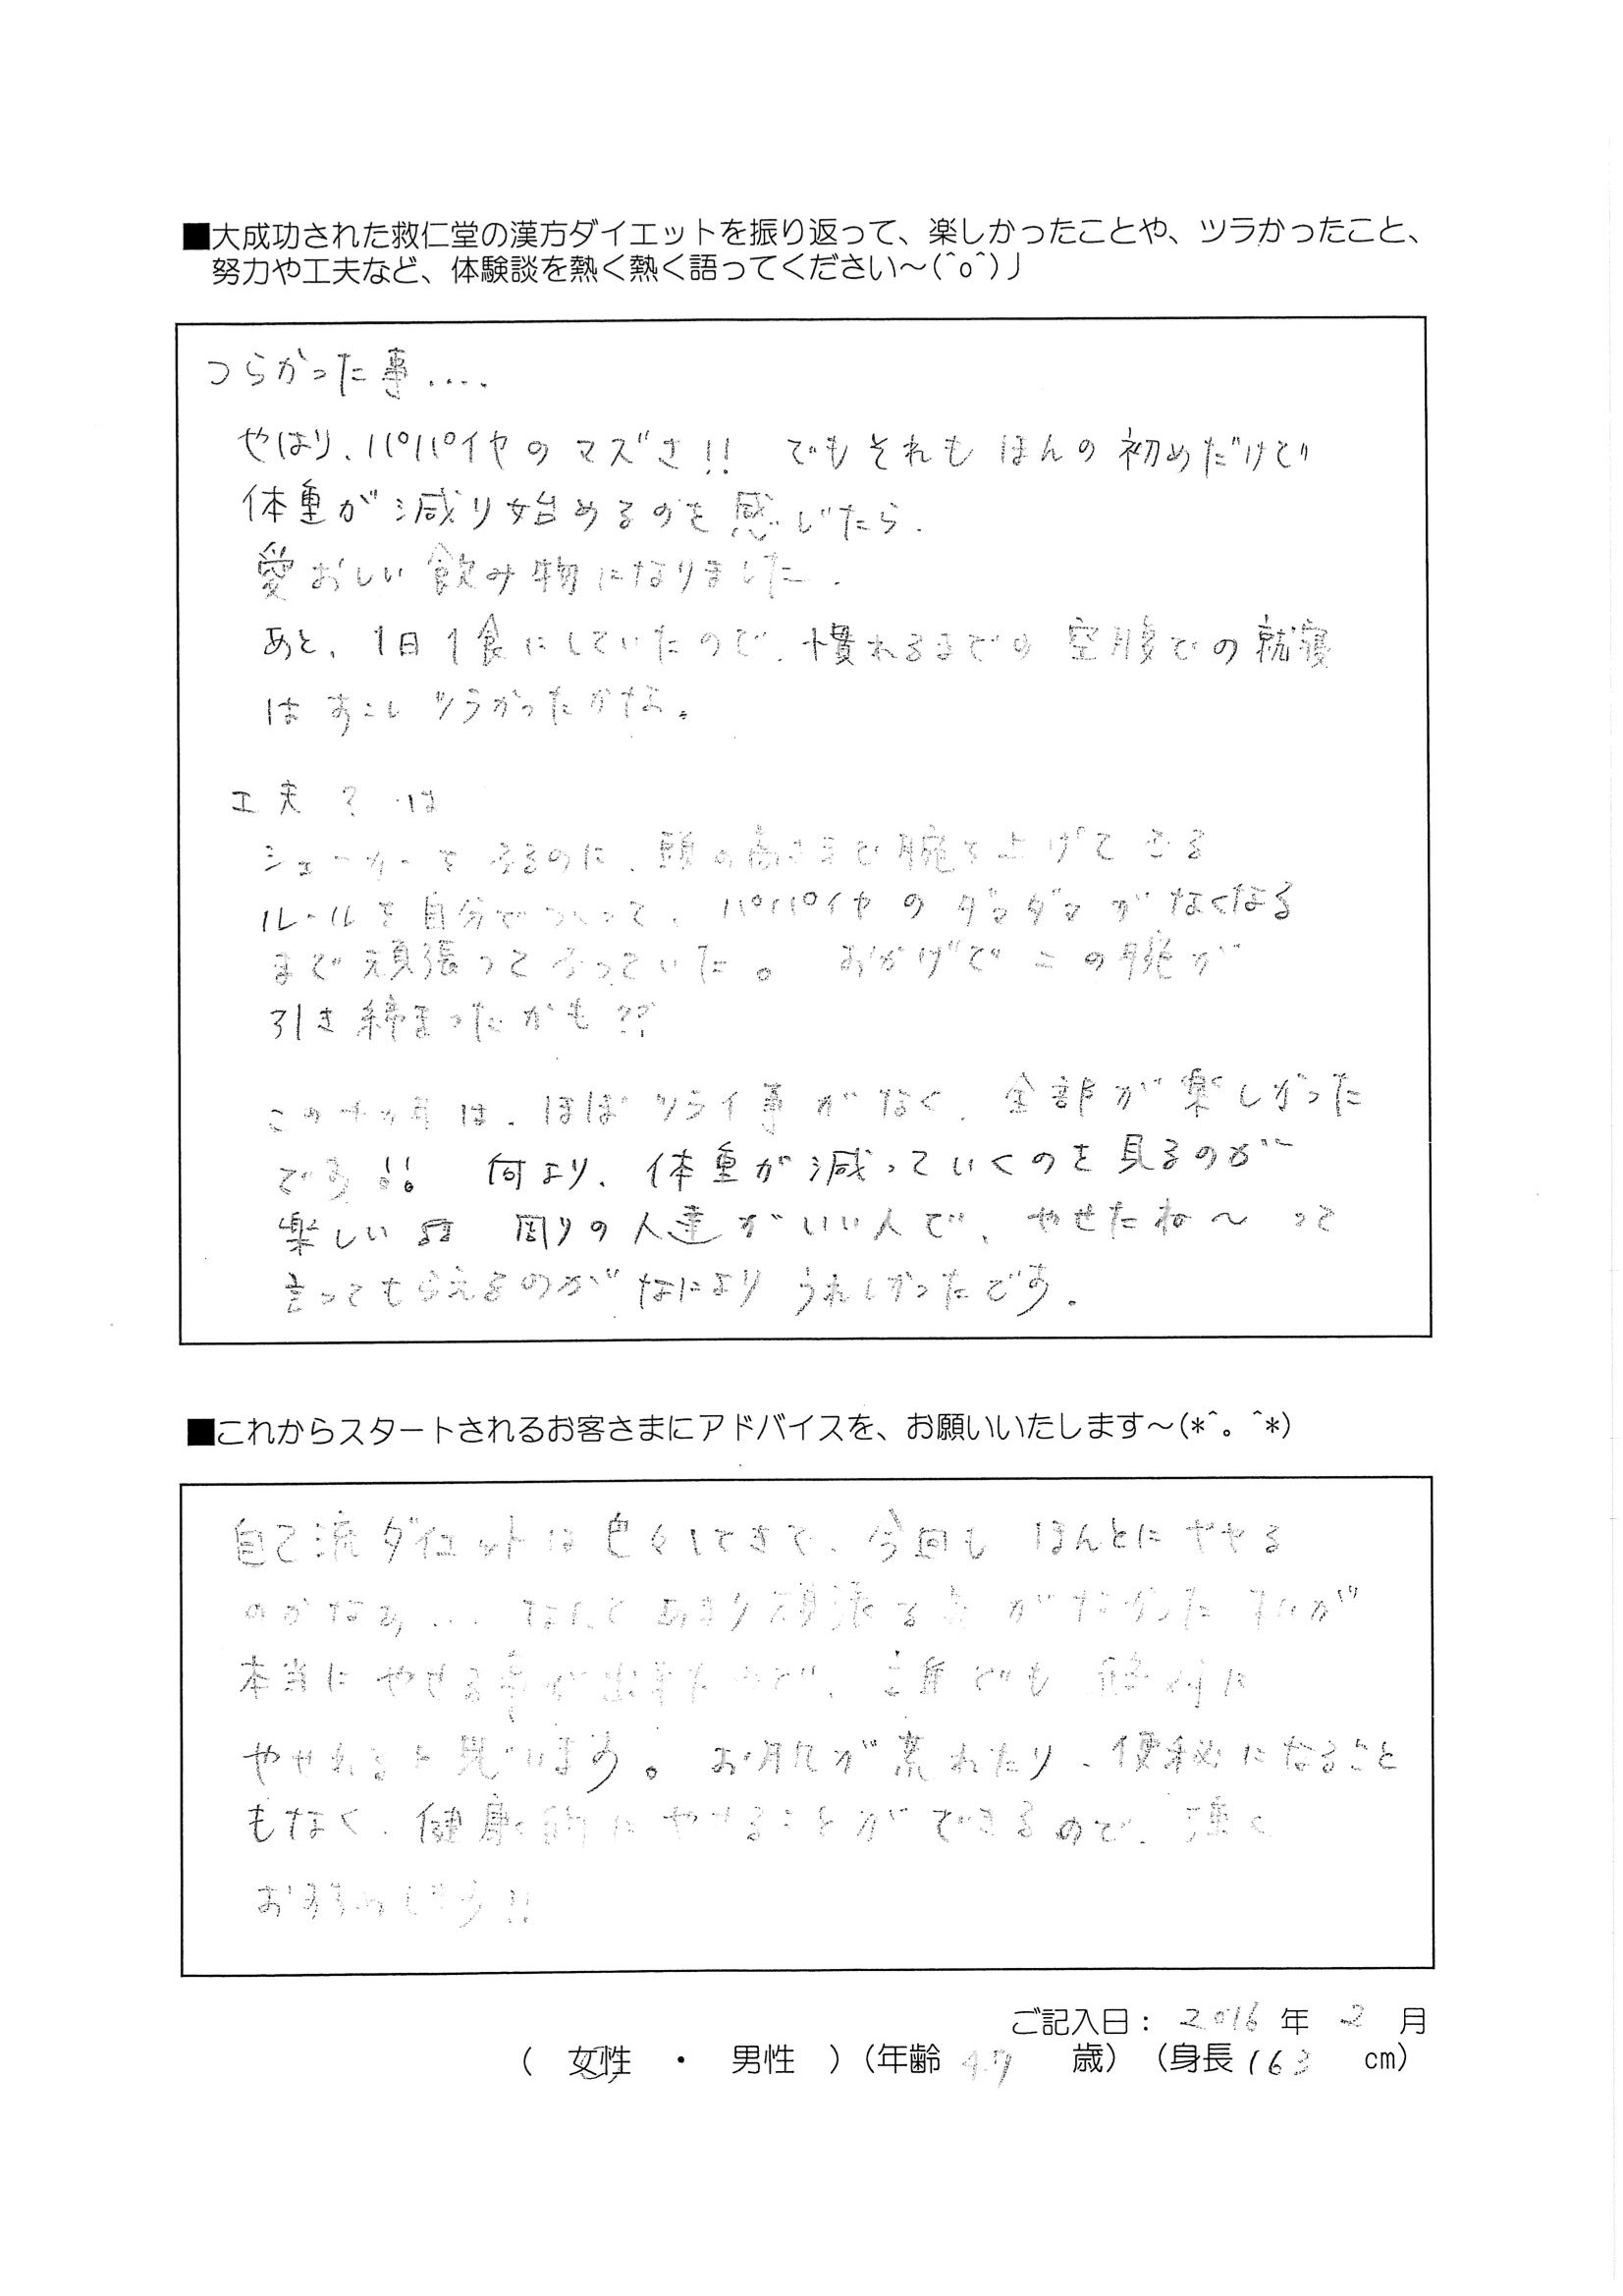 ■大成功された救仁堂の漢方ダイエットを振り返って、楽しかったことや、ツラかったこと、
努力や工夫など、体験談を熱く熱く語ってください～(^o^)丿
つらかった事....
やはり、パパイヤのマズさ!! でもそれもほんの初めだけで
体重が減り始めるのを感じたら、
愛おしい飲み物になりました。
あと、1日1食にしていたので、慣れるまでの空腹での就寝
はすこしツラかったかな。
工夫？は
シェーカーをふるのに、頭の高さまで腕を上げてふる
ルールを自分でつくって、パパイヤのダマダマがなくなる
まで頑張ってふっていた。 おかげで二の腕が
引き締まったかも??
このは、ほぼツライ事がなく、全部が楽しかった
です!! 何より、体重が減っていくのを見るのが
楽しい♫ 周りの人達がいい人で、やせたね～って
言ってもらえるのがなによりうれしかったです。
■これからスタートされるお客さまにアドバイスを、お願いいたします～(*^。^*)
自己流ダイエットは色々してきて、今回もほんとにヤセる
のかなぁ... なんてあまり頑張る気がなかった私が
本当にやせる事が出来たので、誰でも絶対に
やせれると思います。お肌が荒れたり、便秘になること
もなく、健康的にやせることができるので、強く
おすすめします!!
ご記入日： 2016 年 2 月
( 女性 ・ 男性 ) (年齢 47 歳) (身長 163 cm)